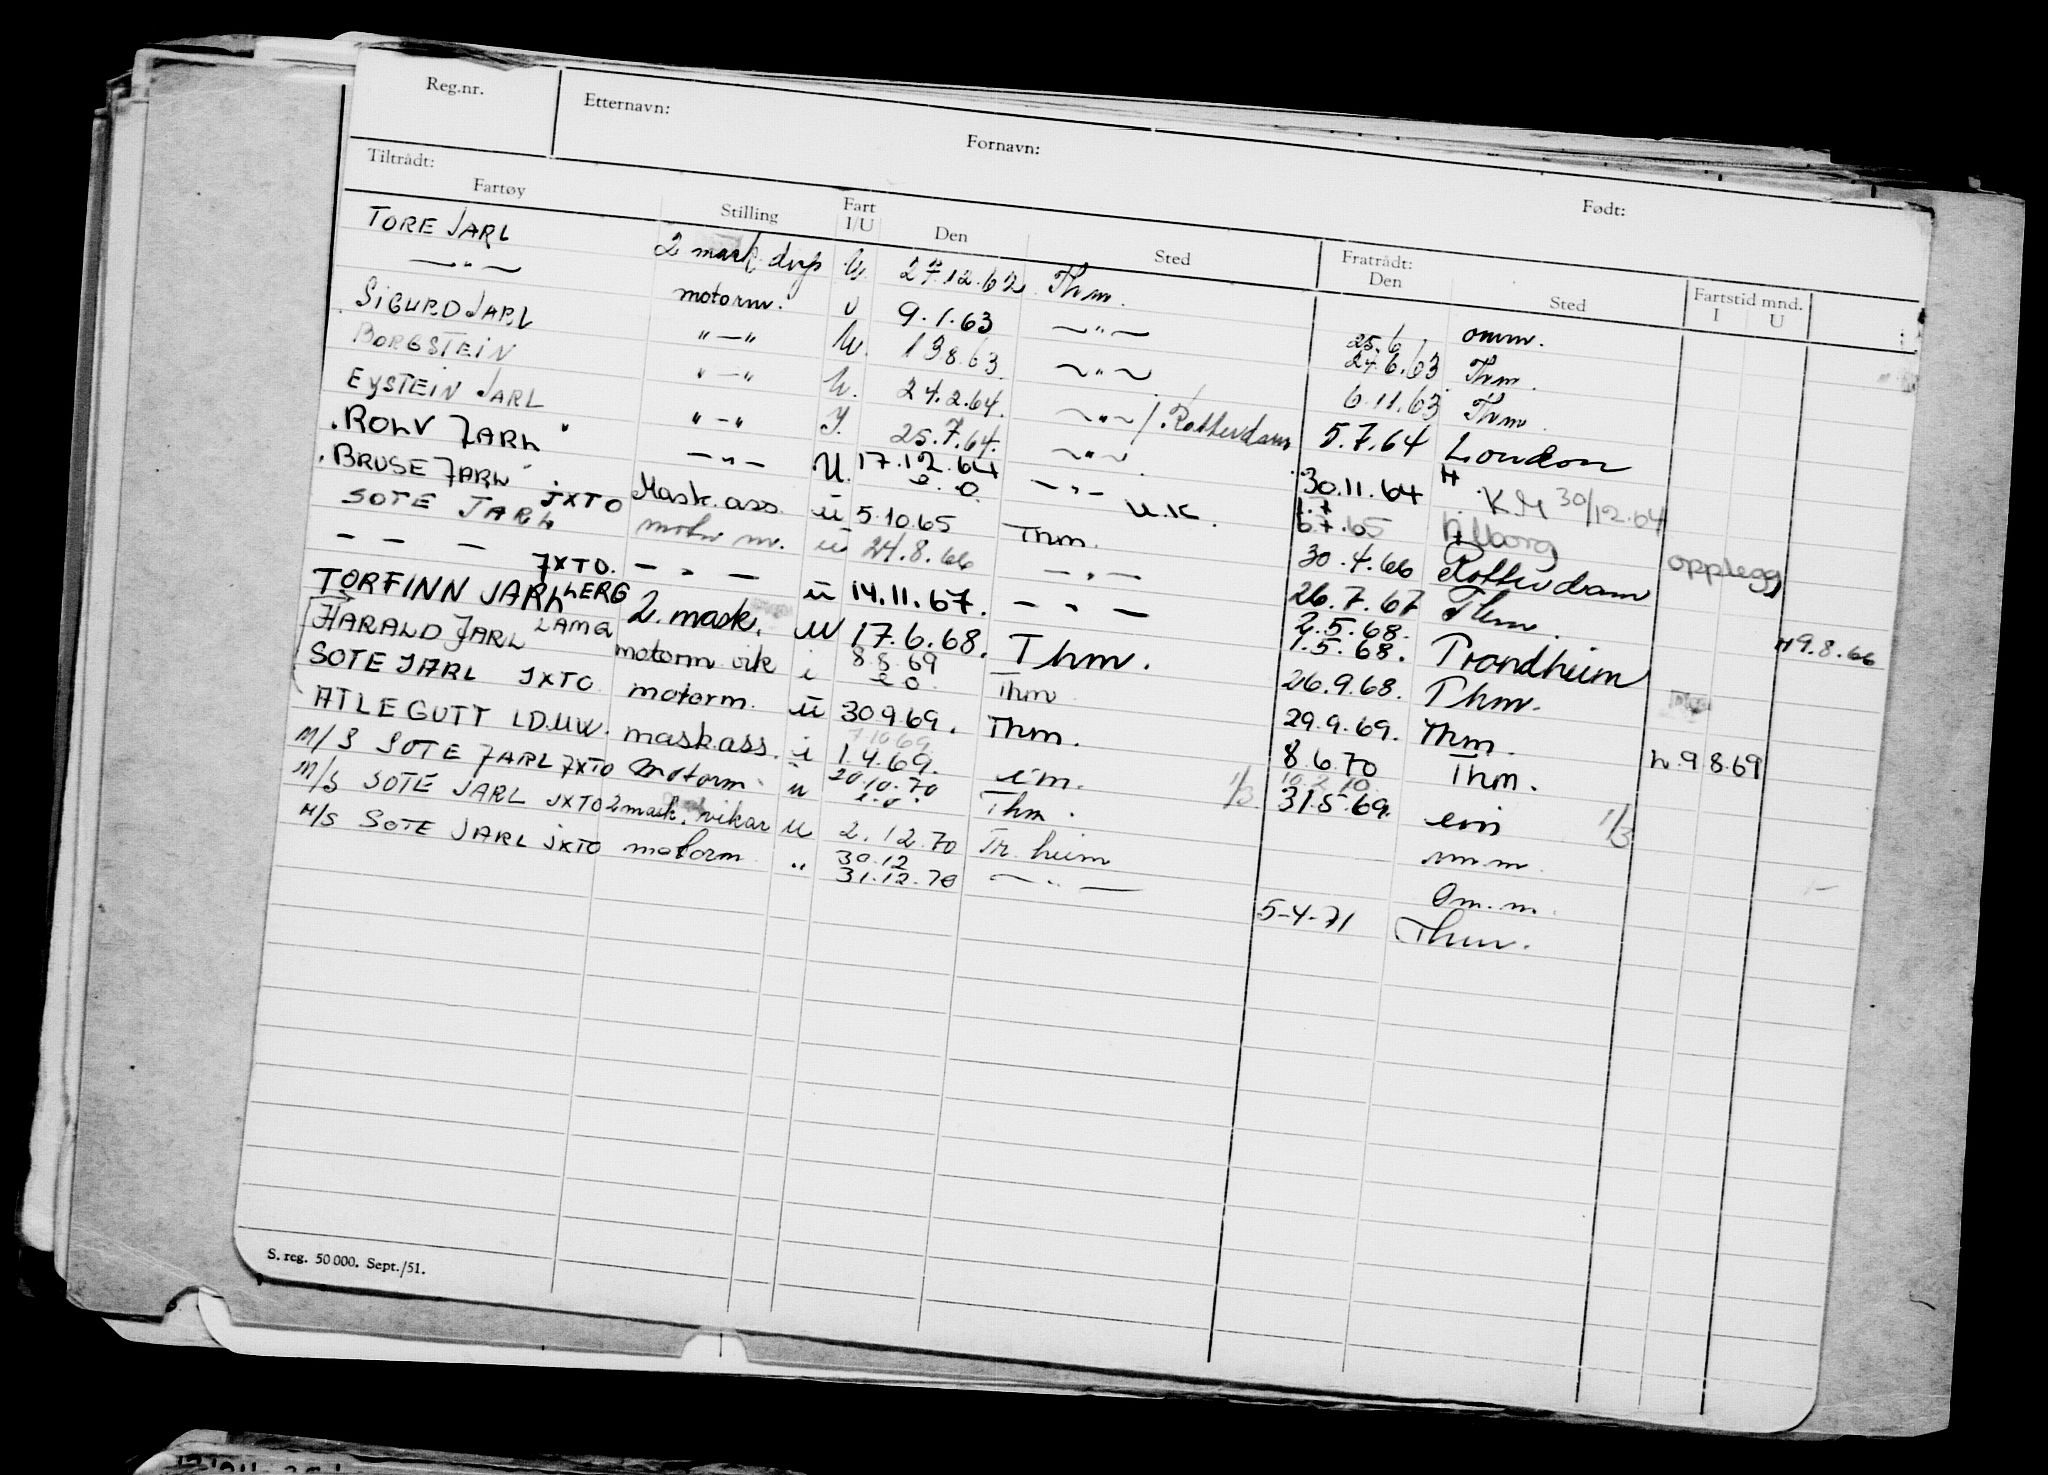 Reg.nr. Etternavn: Fornavn: Født:
Tiltrådt: Fratrådt:
Fartøy Stilling Fart I/U Den Sted Den Sted Fartstid mnd. I U
TORE JARL 2 mask disp U. 27.12.62 Thm. 25.6. omm.
—"— motorm. U 9.1.63 —"— 24.6.63 Thm.
SIGURD JARL "—" U. 13 8.63 —"— 6.11.63 Thm.
BORGSTEIN "—" U. 24.2.64. —"— / Rotterdam 5.7.64 London
EYSTEIN JARL "—" I. 25.7.64. —"— 30.11.64 H. KM 30/12.64
"ROLV JARL" —"— U. 17.12.64 —"— U.K. 1.7 6.7.65 Ålborg opplegg
"BRUSE JARL" JXTO Mask.ass. U e.o. 5.10.65 Thm. 30.4.66 Rotterdam
SOTE JARL motorm. U 24.8.66 —"— 26.7.67 Thm. H 9.8.66
— — — JXTO. — " — U 14.11.67. — " — 2.5.68. 1.5.68. Trondheim
TORFINN JARL LERG 2. mask. U 17.6.68. Thm. 26.9.68. Thm.
HARALD JARL LAMG motorm vik i 8.8.69 Thm 29.9.69. Thm. h.9 8.69
SOTE JARL JXTO motorm. U e o. 30 9 69. Thm. 8.6.70 Thm.
ATLE GUTT LDUW. mask.ass. i 7.10.69 1.4.69. e.m. 1/3 10.2.70 31.5.69. em 1/3
M/S SOTE JARL JXTO Motorm U 20.10.70 e.o. Thm. m.m
M/S SOTE JARL JXTO 2 mask. vikar U 2.12.70 Tr.heim Om.m.
M/S SOTE JARL JXTO motorm " 30.12 31.12.70 —"— 5-4-71 Thm.
S. reg. 50 000. Sept./51.